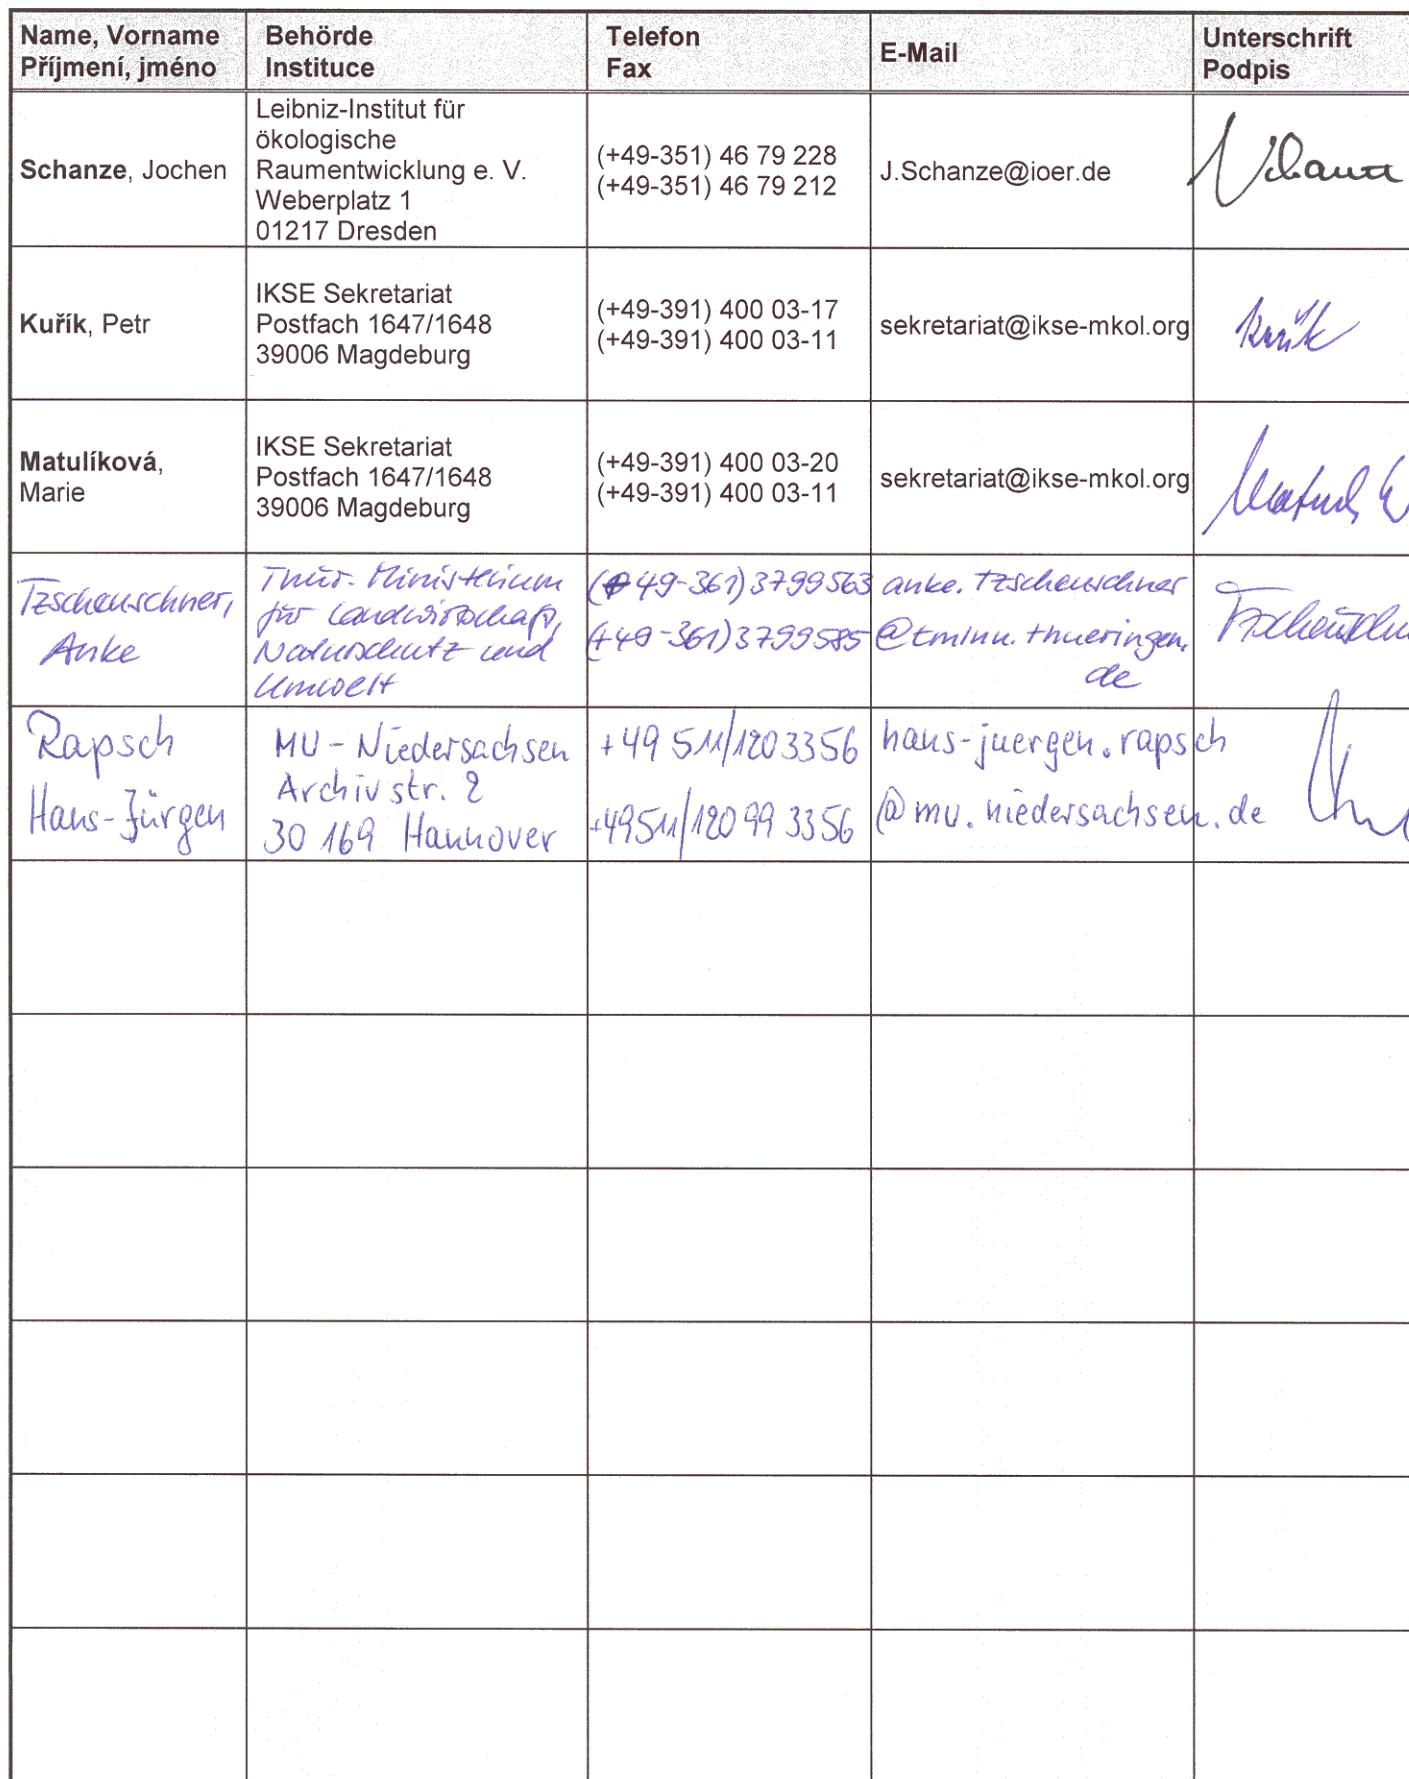 Name, Vorname
Příjmení, jméno
Behörde
Instituce
Telefon
Fax
E-Mail
Unterschrift
Podpis
Schanze, Jochen
Leibniz-Institut für
ökologische
Raumentwicklung e. V.
Weberplatz 1
01217 Dresden
(+49-351) 46 79 228
(+49-351) 46 79 212
J.Schanze@ioer.de
Kuřík, Petr
IKSE Sekretariat
Postfach 1647/1648
39006 Magdeburg
(+49-391) 400 03-17
(+49-391) 400 03-11
sekretariat@ikse-mkol.org
Kuřík
Matulíková,
Marie
IKSE Sekretariat
Postfach 1647/1648
39006 Magdeburg
(+49-391) 400 03-20
(+49-391) 400 03-11
sekretariat@ikse-mkol.org
Tzschenschner,
Anke
Thür. Ministerium
für Landwirtschaft,
Naturschutz und
Umwelt
(+49-361) 3799563
(+49-361) 3799585
anke.tzschenschner
@tmlnu.thueringen.
de
Rapsch
Hans-Jürgen
MU-Niedersachsen
Archivstr. 2
30 169 Hannover
+49 511/1203356
+49511/120 99 3356
hans-juergen.rapsch
@mu.niedersachsen.de